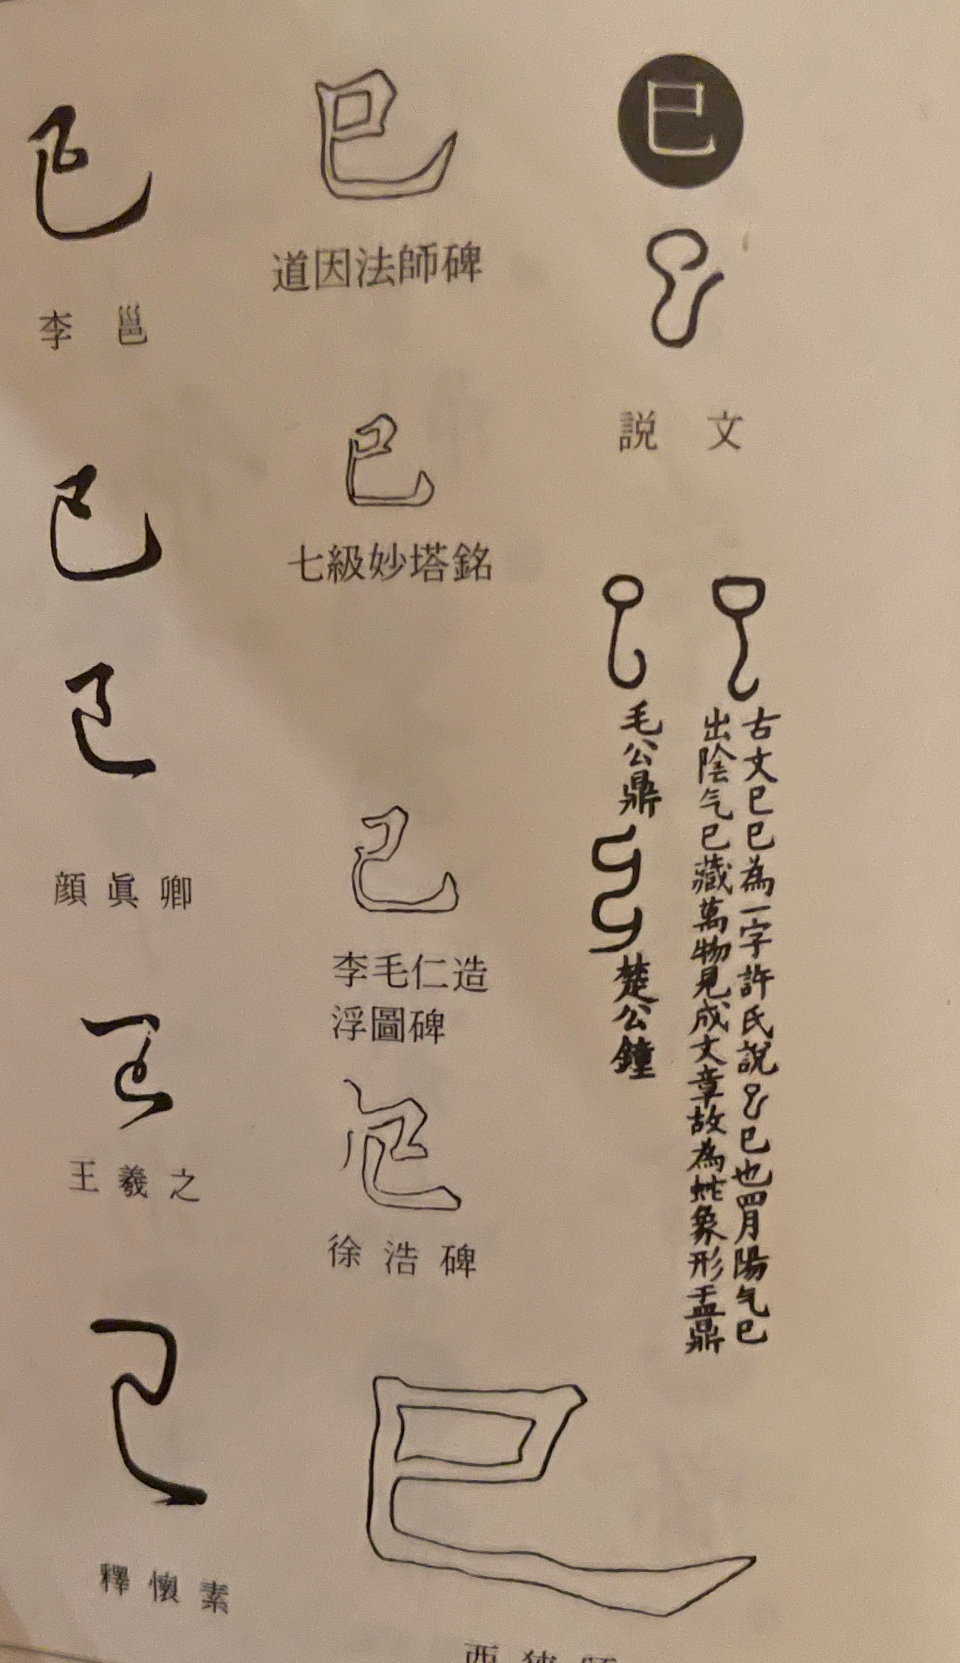 巳
巳
説文
古文巳巳為一字許氏說巳巳也四月陽气巳
出陰气巳藏萬物見成文章故為蛇象形盂鼎
毛公鼎
楚公鐘
巳
道因法師碑
巳
七級妙塔銘
巳
李毛仁造
浮圖碑
巳
徐浩碑
巳
西狭頌
巳
李邕
巳
巳
顔眞卿
巳
王羲之
巳
釋懷素